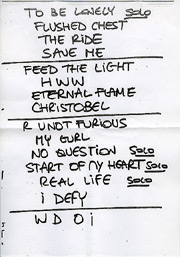 TO BE LONELY SOLO
FLUSHED CHEST
THE RIDE
SAVE ME
FEED THE LIGHT
HWW
ETERNAL FLAME
CHRISTOBEL
R UNOT FURIOUS
MY GURL
NO QUESTION SOLO
START OF MY HEART SOLO
REAL LIFE SOLO
I DEFY
W D O i